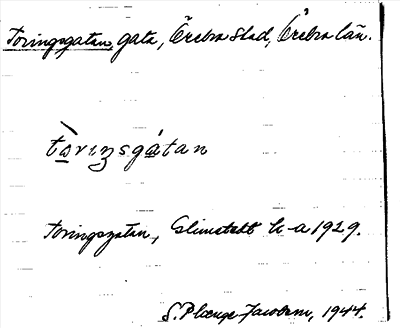 Toringsgatan, gata, Örebro stad, Örebro län.
tòrɩŋsgátan
Toringsgatan, Elmstedt k-a 1929.
S. Plænge Jacobson, 1944.